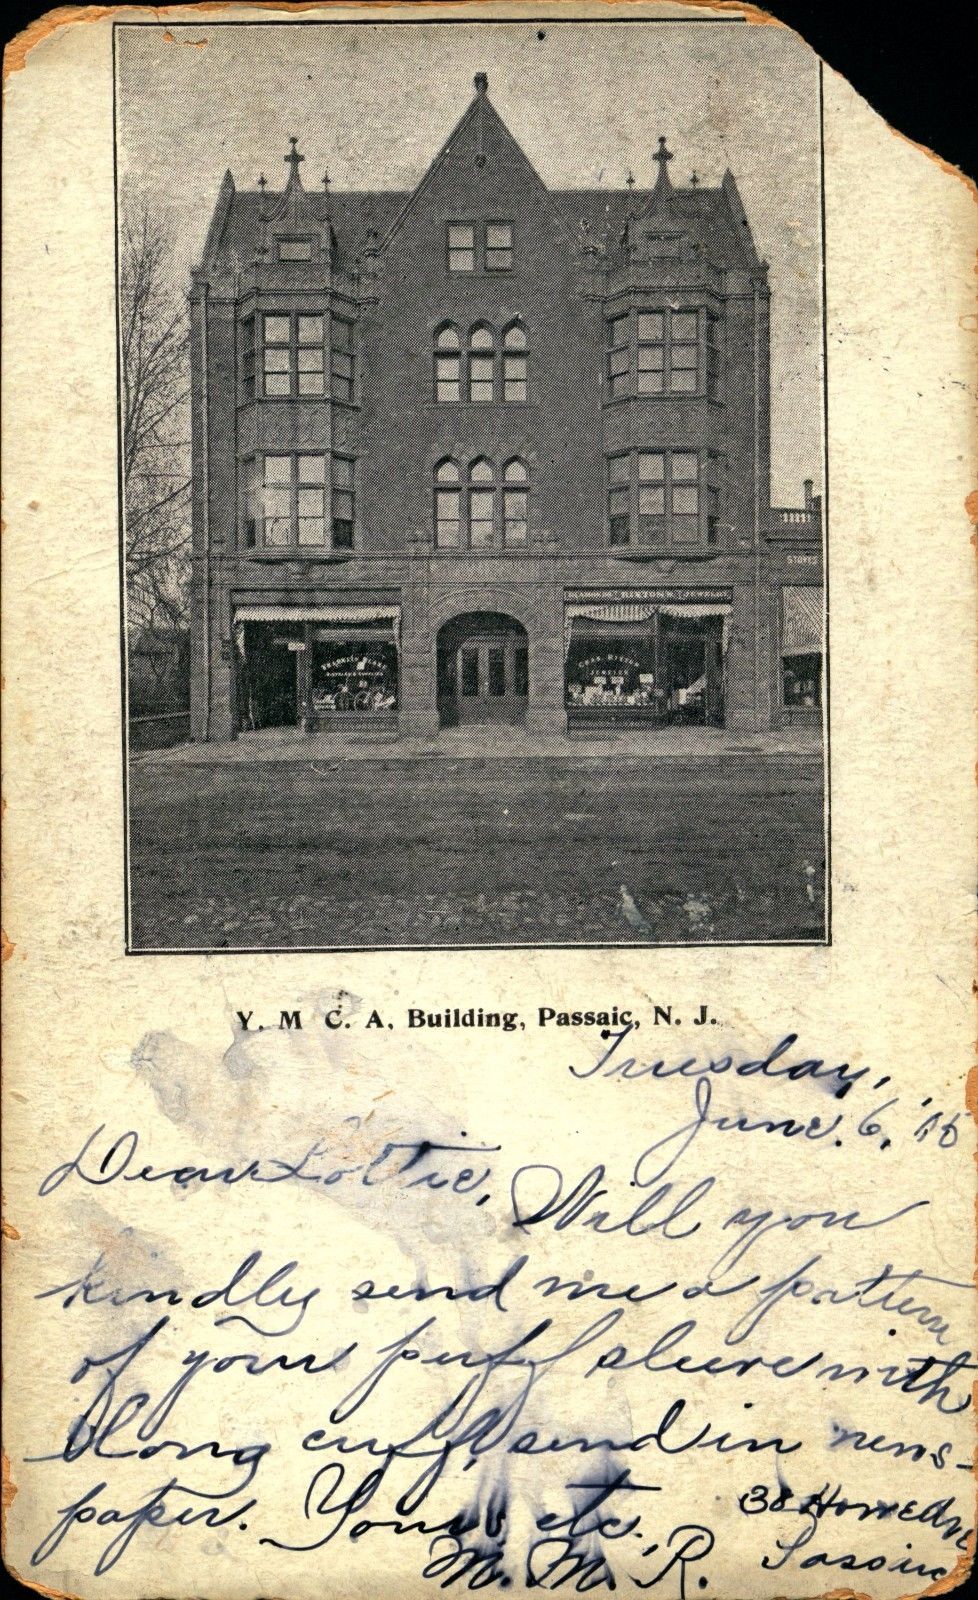 STORES
JEWELER
Y. M C. A. Building, Passaic, N. J.
Tuesday,
June. 6, '05
Dear Lottie,
Will you
kindly send me a pattern
of your puff sleeve with
long cuff, send in news-
paper. Yours etc.,
M. M. R.
38 Howe Ave
Passaic